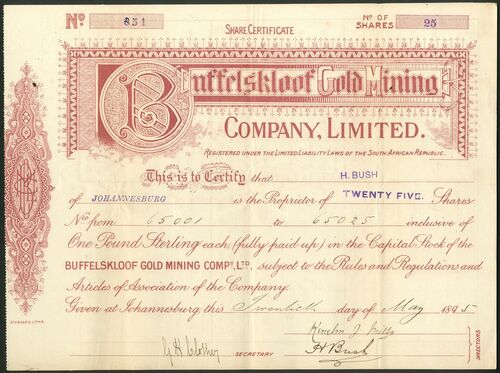 No 651
SHARE CERTIFICATE
No OF SHARES 25
Buffelskloof Gold Mining
COMPANY, LIMITED.
REGISTERED UNDER THE LIMITED LIABILITY LAWS OF THE SOUTH AFRICAN REPUBLIC.
This is to Certify that H. BUSH
of JOHANNESBURG is the Proprietor of TWENTY FIVE. Shares
Nos from 65001 to 65025 inclusive of
One Pound Sterling each (fully paid up) in the Capital Stock of the
BUFFELSKLOOF GOLD MINING COMPY, LTD. subject to the Rules and Regulations and
Articles of Association of the Company.
Given at Johannesburg, this Twentieth day of May 1895
SECRETARY
H Bush
DIRECTORS
STANDARD, LITHO.